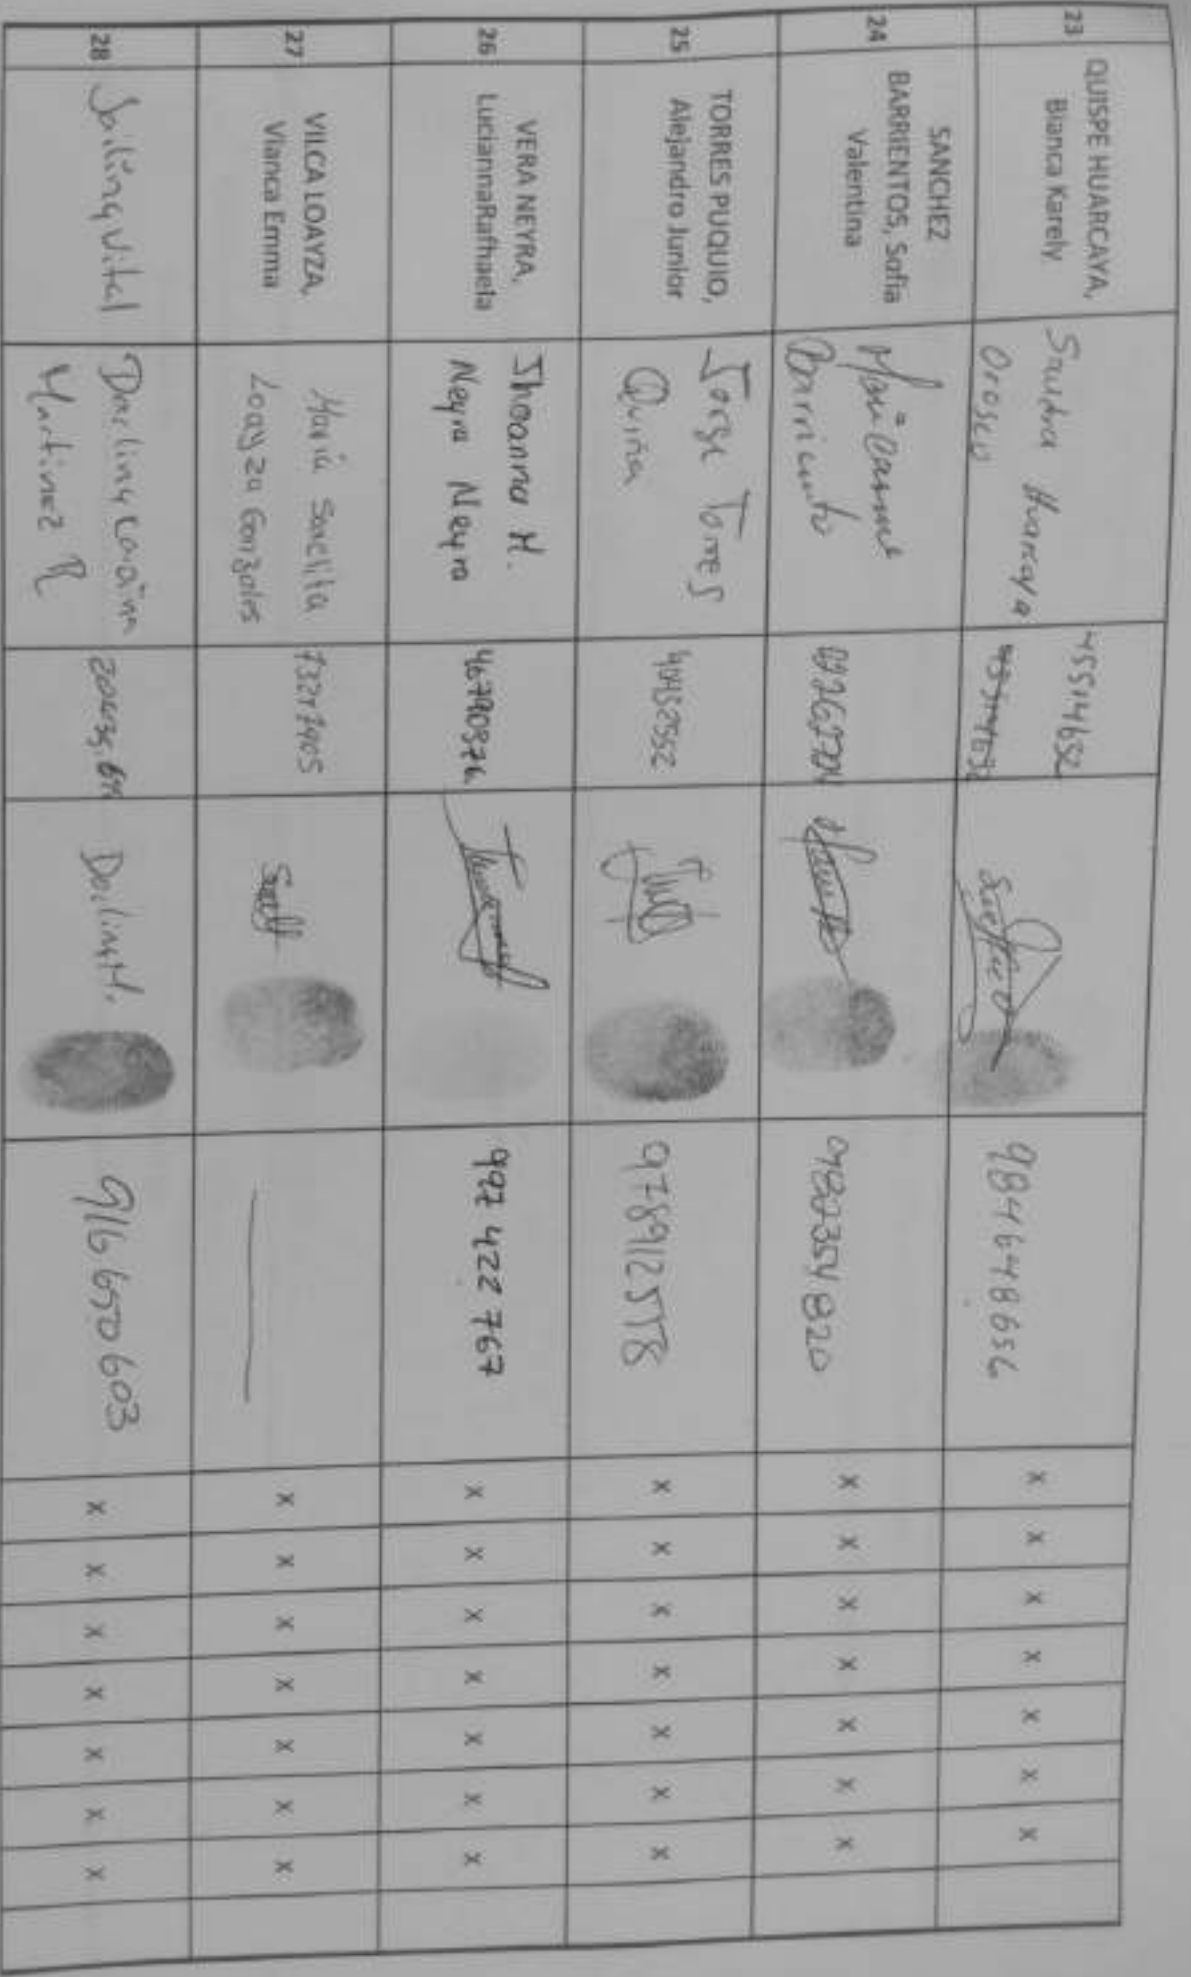 23
QUISPE HUARCAYA,
Bianca Karely
Sandra Huarcaya
Orosco
45514652
984648656
x x x x x x x
24
SANCHEZ
BARRIENTOS, Sofia
Valentina
Barriento
x x x x x x x
25
TORRES PUQUIO,
Alejandro Junior
Jorge Torres
Quiña
40432552
978912558
x x x x x x x
26
VERA NEYRA,
LuciannaRafhaela
Jhoanna M.
Neyra Neyra
46790876
997 422 767
x x x x x x x
27
VILCA LOAYZA,
Vianca Emma
María
Loayza Gonzales
x x x x x x x
28
Martinez R
Darling M.
916650603
x x x x x x x